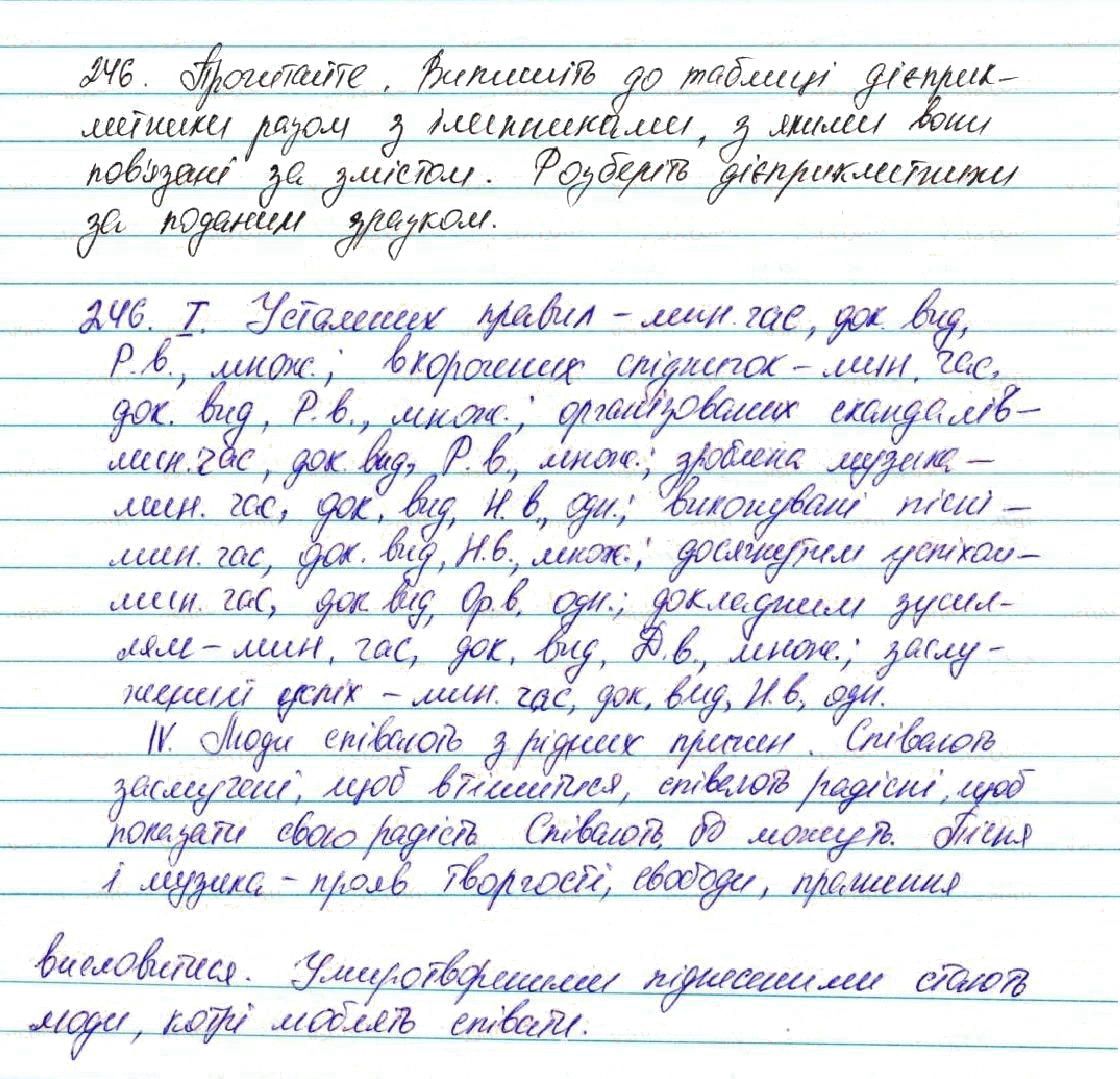 246. Прочитайте. Випишіть до таблиці дієприк-
метники разом з іменниками, з якими вони
пов'язані за змістом. Розберіть дієприкметники
за поданим зразком.
246. I. Усталених правил - мин. час, док. вид,
Р.в., множ.; вкорочених спідничок - мин. час,
док. вид, Р.в., множ.; організованих скандалів -
мин. час, док. вид, Р.в., множ.; зроблена музика -
мин. час, док. вид, Н.в., одн.; виконувані пісні -
мин. час, док. вид, Н.в., множ.; досягнутим успіхом -
мин. час, док. вид, Ор.в. одн.; докладним зусил-
лям - мин. час, док. вид, Д.в., множ.; заслу-
жений успіх - мин. час, док. вид, Н.в., одн.
IV. Люди співають з рідних причин. Співають
засмучені, щоб втішитися, співають радісні, щоб
показати свою радість. Співають, бо можуть. Пісня
і музика - прояв творчості, свободи, прагнення
висловитися. Умиротвореними піднесеними стають
люди, котрі люблять співати.